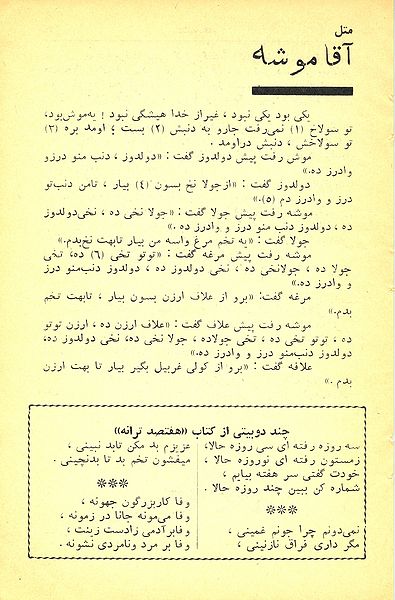 متل
آقا موشه
یکی بود یکی نبود ، غیراز خدا هیشکی نبود ! یه‌موش‌بود،
تو سولاخ (۱) نمی‌رفت جارو به دنبش (۲) بست ؛ اومد بره (۳)
تو سولاخش ، دنبش دراومد .
موش رفت پیش دولدوز گفت : «دولدوز ، دنب منو درزو
وادرز ده.»
دولدوز گفت : «ازجولا نخ بسون (٤) بیار ، تامن دنب‌تو
درز و وادرز دم (۵).»
موشه رفت پیش جولا گفت : «جولا نخی ده ، نخی‌دولدوز
ده ، دولدوز دنب منو درز و وادرز ده .»
جولا گفت : «یه تخم مرغ واسه من بیار تابهت نخ‌بدم.»
موشه رفت پیش مرغه گفت : «توتو تخی (٦) ده، تخی
جولا ده ، جولانخی ده ، نخی دولدوز ده ، دولدوز دنب‌منو درز
و وادرز ده.»
مرغه گفت: «برو از علاف ارزن بسون بیار ، تابهت تخم
بدم.»
موشه رفت پیش علاف گفت : «علاف ارزن ده ، ارزن توتو
ده ، توتو تخی ده ، تخی جولاده ، جولا نخی ده، نخی دولدوز ده،
دولدوز دنب‌منو درز و وادرز ده.»
علافه گفت : «برو از کولی غربیل بگیر بیار تا بهت ارزن
بدم .»
چند دوبیتی از کتاب «هفتصد ترانه»
سه روزه رفته ای سی روزه حالا،
زمستون رفته ای نوروزه حالا ،
خودت گفتی سر هفته بیایم ،
شماره کن ببین چند روزه حالا .
***
نمی‌دونم چرا جونم غمینی ،
مگر داری فراق نازنینی ،
عزیزم بد مکن تابد نبینی ،
میفشون تخم بد تا بدنچینی .
***
وفا کاربزرگون جهونه ،
وفا می‌مونه جانا در زمونه ،
وفابرآدمی زادست زینت ،
وفا بر مرد ونامردی نشونه .